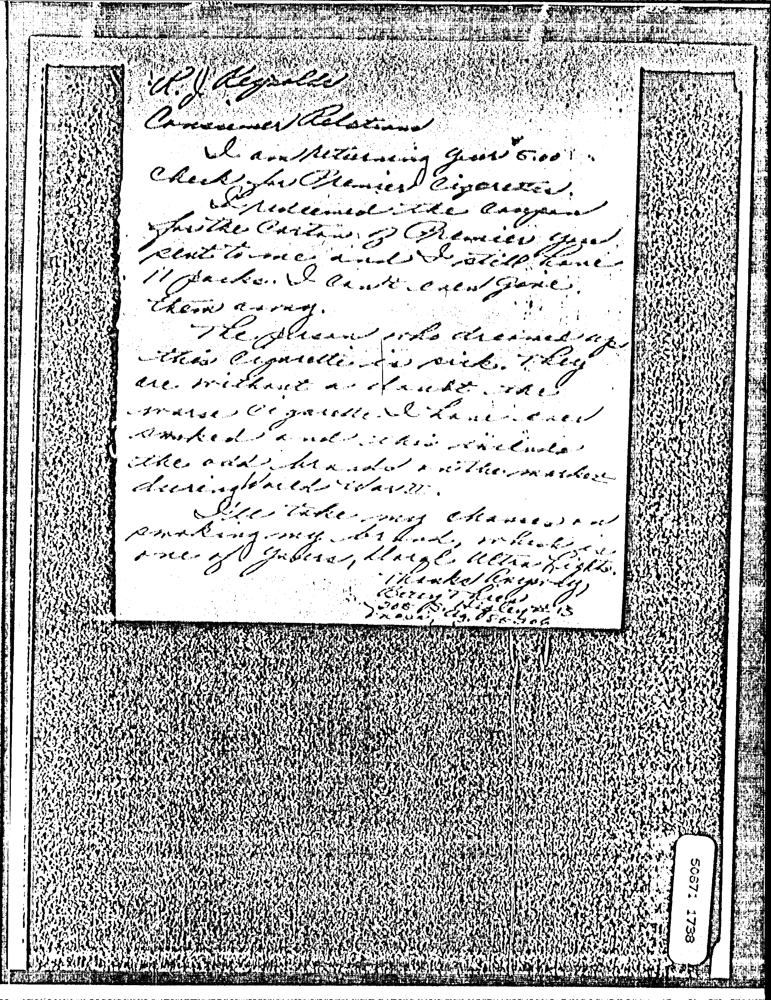 R. J. Reynolds
Consumer Relations
I am returning your $5.00
check for Premier Cigarettes.
I redeemed the coupon
for the Carton of Premier you
sent to me and I still have
11 packs. I can't even give
them away.
The person who dreamed up
this Cigarette is sick. They
are without a doubt the
worse Cigarette I have ever
smoked and this include
the odd brands on the market
during World War II.
I'll take my chances on
smoking my brand, which is
one of yours, Ultra Lights.
Thanks
50671 1738